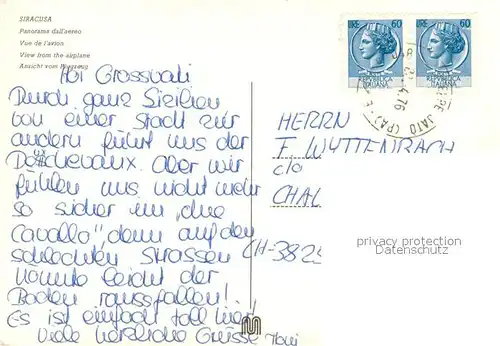 SIRACUSA
Panorama dall'aereo
Vue de l'avion
View from the airplane
Ansicht vom Flugzeug
60
60
REPUBBLICA ITALIANA
REPUBBLICA ITALIANA
4.76
JATO (PA)
Hoi Grossvati
Durch ganz Sizilien
von einer Stadt zur
andern führt uns der
Döschevaux. Aber wir
fühlen uns nicht mehr
so sicher im „due
Cavallo", denn auf den
schlechten Strassen
könnte leicht der
Boden rausfallen!
Es ist einfach toll hier!
Viele herzliche Grüsse
HERRN
F. WYTTENBACH
c/o
CHAL
CH-3825
privacy protection
Datenschutz